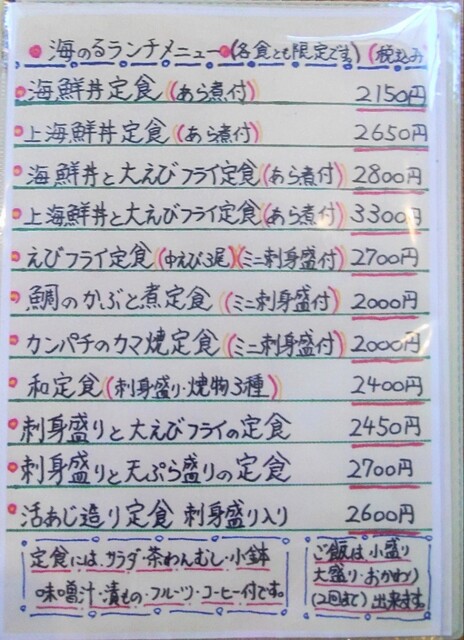 海のるランチメニュー (各食とも限定です) (税込み)
海鮮丼定食 (あら煮付) 2150円
上海鮮丼定食 (あら煮付) 2650円
海鮮丼と大えびフライ定食 (あら煮付) 2800円
上海鮮丼と大えびフライ定食 (あら煮付) 3300円
えびフライ定食 (中えび3尾)(ミニ刺身盛付) 2700円
鯛のかぶと煮定食 (ミニ刺身盛付) 2000円
カンパチのカマ焼定食 (ミニ刺身盛付) 2000円
和定食 (刺身盛り・焼物3種) 2400円
刺身盛りと大えびフライの定食 2450円
刺身盛りと天ぷら盛りの定食 2700円
活あじ造り定食 刺身盛り入り 2600円
定食には、サラダ・茶わんむし・小鉢
味噌汁・漬もの・フルーツ・コーヒー付です。
ご飯は小盛り
大盛り・おかわり
(2回まで) 出来ます。